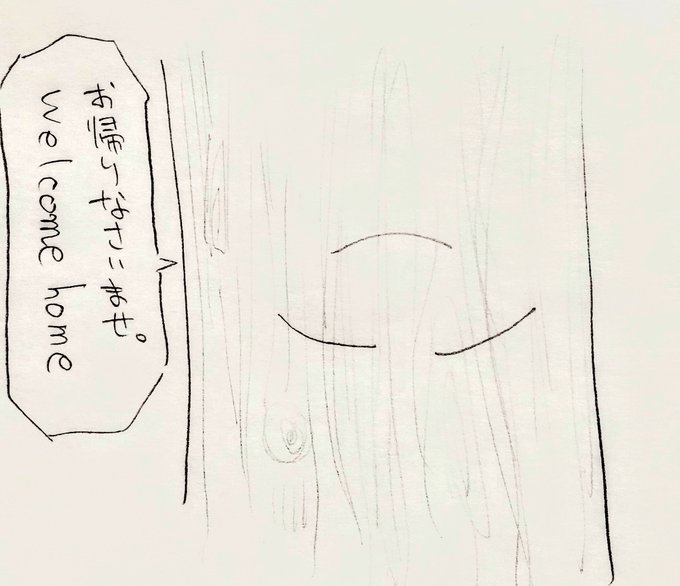 お帰りなさいませ。
welcome home